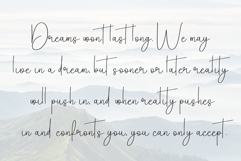 Dreams won't last long. We may
live in a dream, but sooner or later reality
will push in, and when reality pushes
in and confronts you, you can only accept.